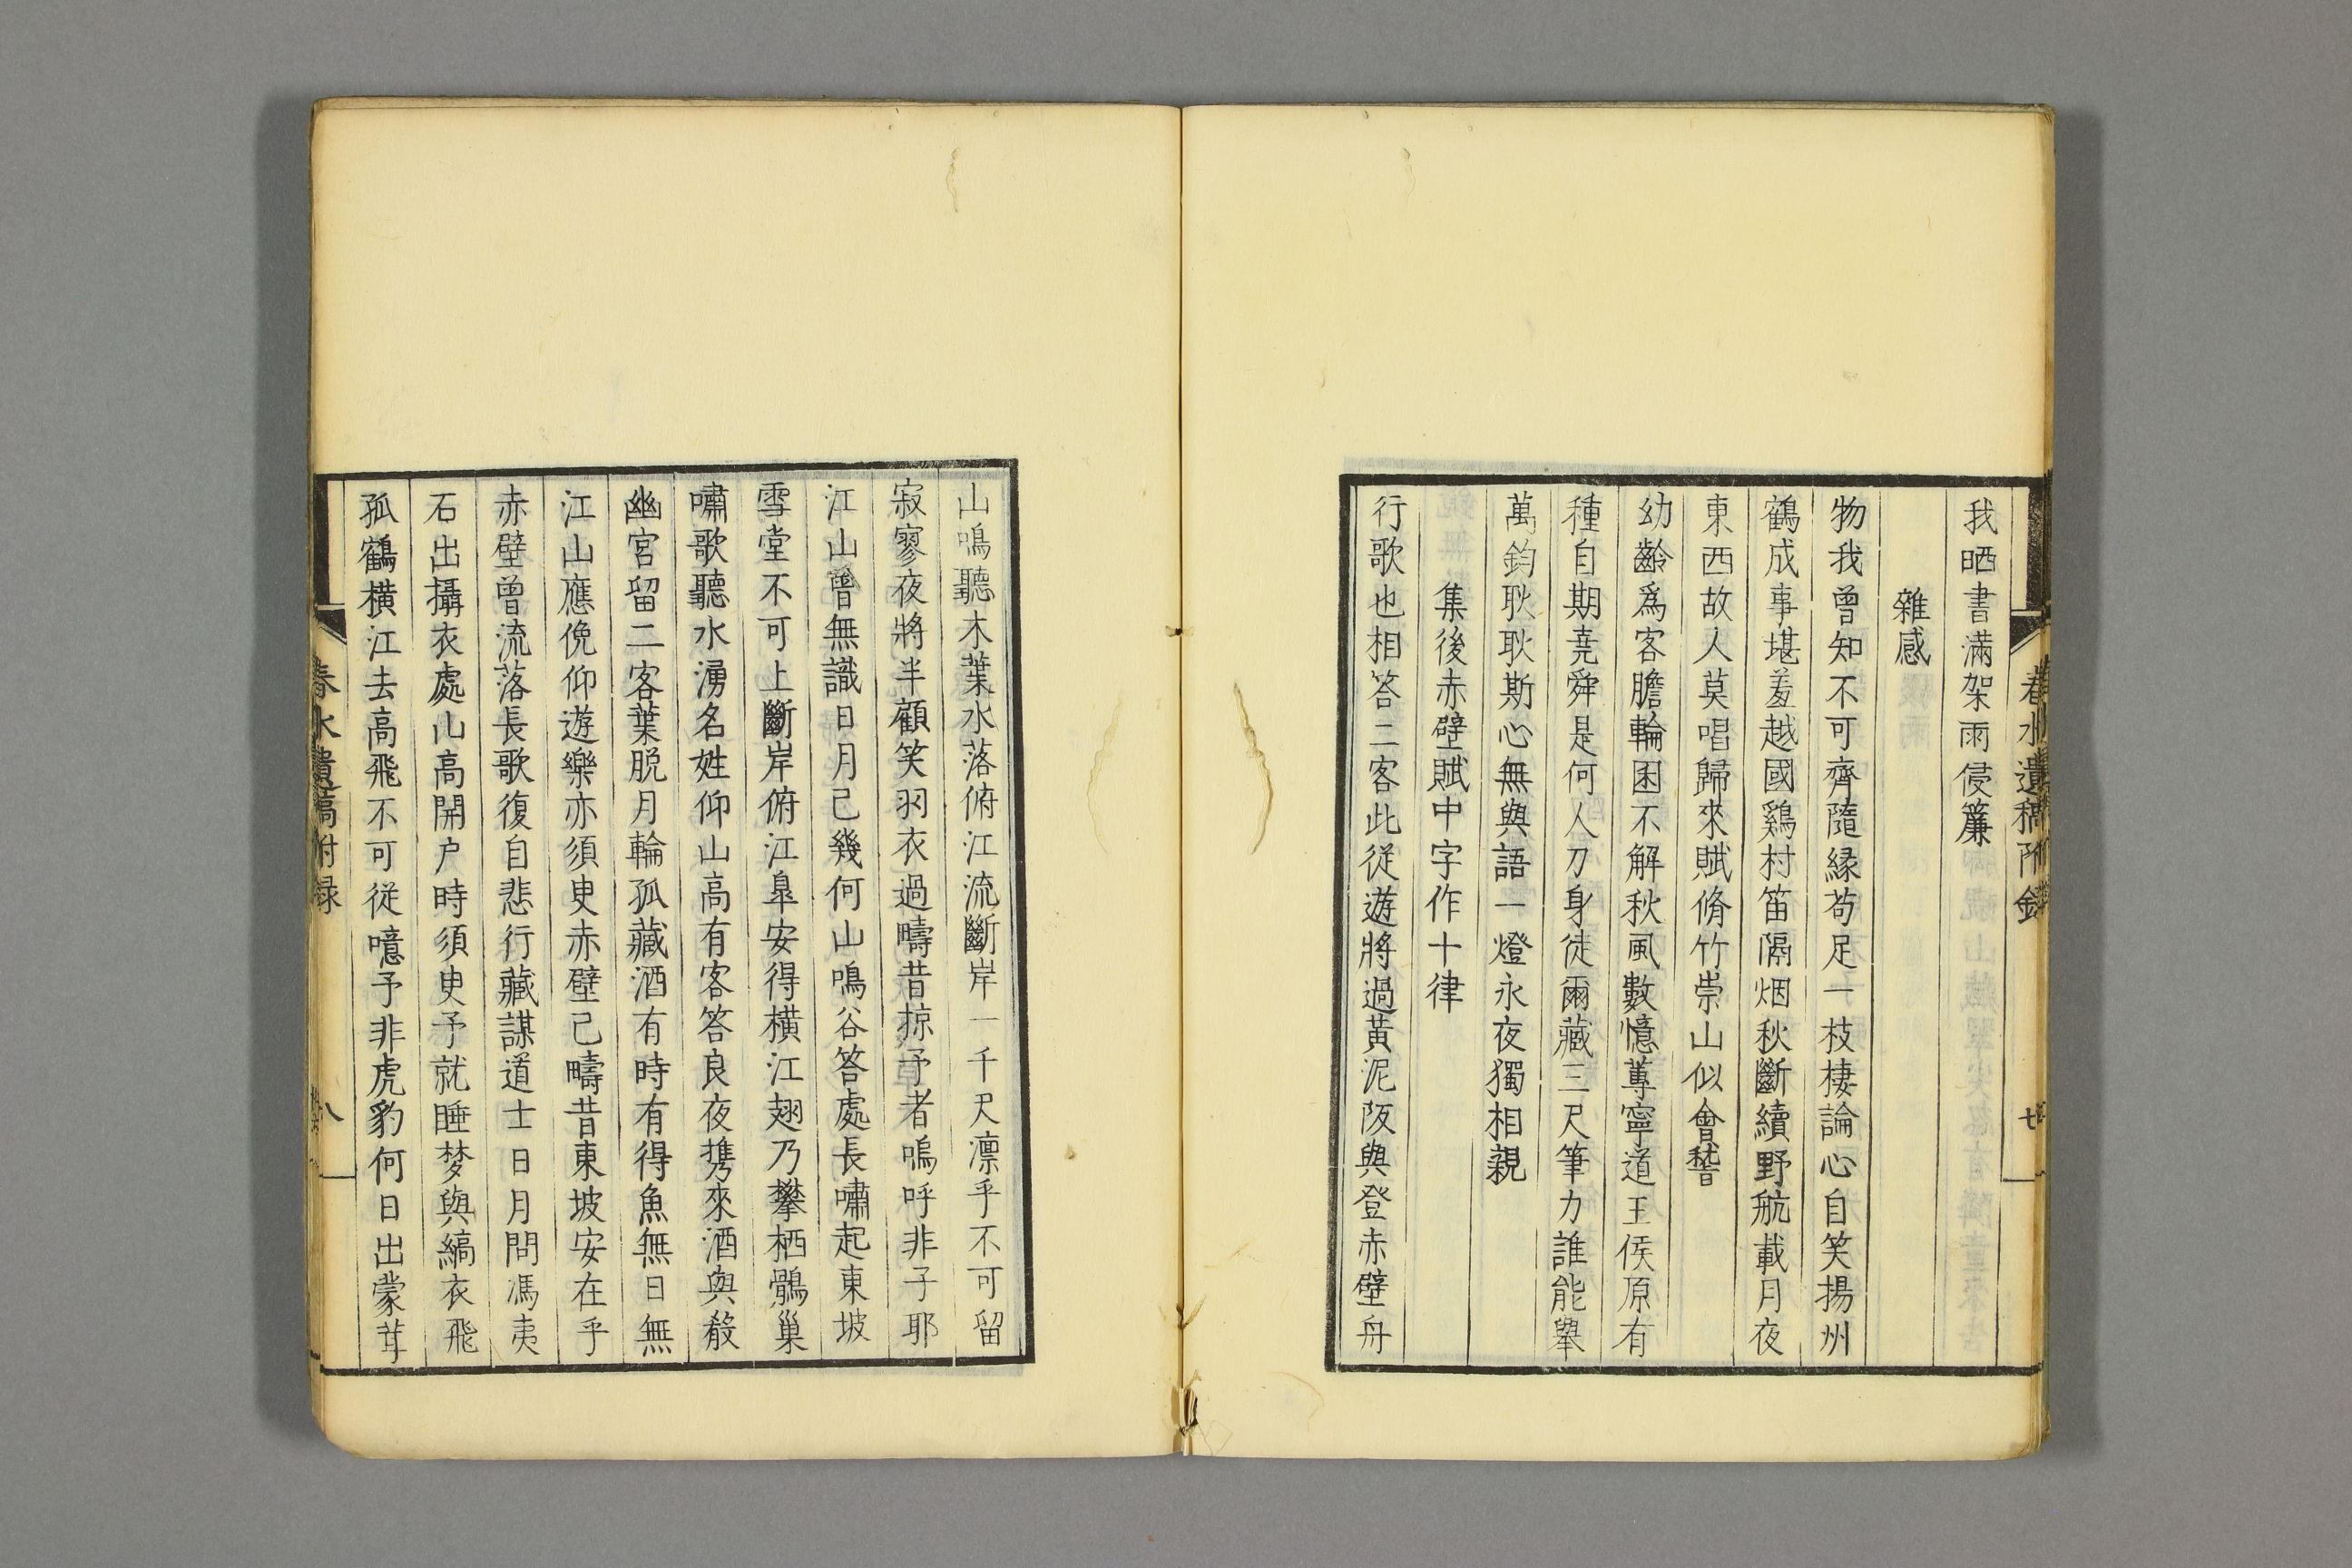 春水遺稿附録
七
我晒書滿架雨侵簾
雜感
物我曽知不可齊隨縁苟足一枝棲論心自笑揚州
鶴成事堪羞越國鷄村笛隔烟秋斷續野航載月夜
東西故人莫唱歸來賦脩竹崇山似會稽
幼齡爲客膽輪囷不解秋風數憶蓴寧道王侯原有
種自期堯舜是何人刀身徒爾藏三尺筆力誰能舉
萬鈞耿耿斯心無與語一燈永夜獨相親
集後赤壁賦中字作十律
行歌也相答二客此從遊將過黃泥阪與登赤壁舟
山鳴聽木葉水落俯江流斷岸一千尺凛乎不可留
寂寥夜將半顧笑羽衣過疇昔掠予者嗚呼非子耶
江山曽無識日月已幾何山鳴谷答處長嘯起東坡
雪堂不可上斷岸俯江臯安得横江翅乃攀栖鶻巢
嘯歌聽水湧名姓仰山高有客答良夜携來酒與殽
幽宮留二客葉脱月輪孤藏酒有時有得魚無日無
江山應俛仰遊樂亦須臾赤壁已疇昔東坡安在乎
赤壁曽流落長歌復自悲行藏謀道士日月問馮夷
石出攝衣處山高開户時須臾予就睡梦與縞衣飛
孤鶴横江去高飛不可從噫予非虎豹何日出蒙茸
春水遺稿附録
八